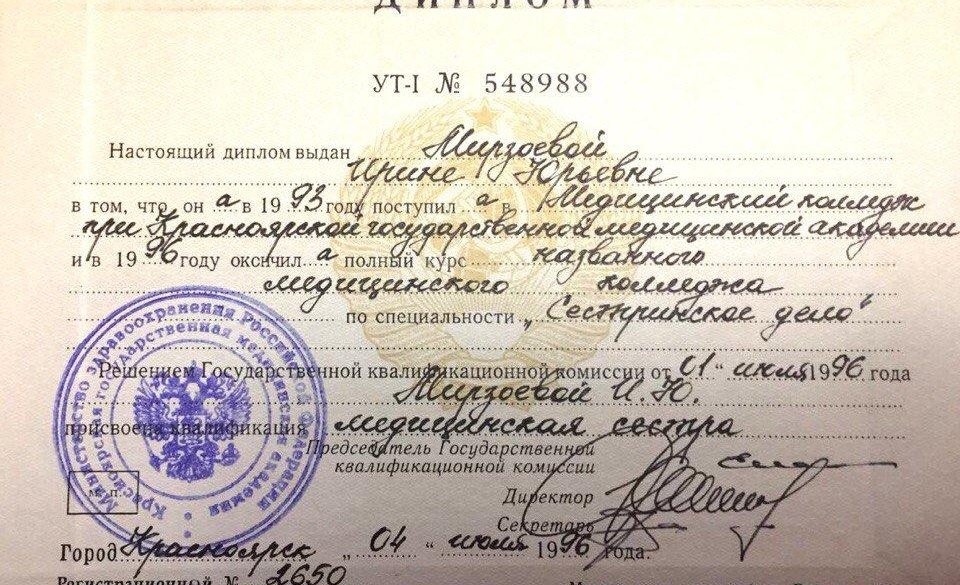 ДИПЛОМ
УТ-I № 548988
Настоящий диплом выдан Мирзоевой
Ирине Юрьевне
в том, что он а в 1993 году поступил а в Медицинский колледж
при Красноярской государственной медицинской академии
и в 1996 году окончил а полный курс названного
медицинского колледжа
по специальности „Сестринское дело"
Решением Государственной квалификационной комиссии от „01" июля 1996 года
Мирзоевой И.Ю.
присвоена квалификация медицинская сестра
Председатель Государственной
квалификационной комиссии
Директор
Секретарь
М.П.
Город Красноярск „04" июля 1996 года.
Регистрационный № 2650
Министерство здравоохранения Российской Федерации
Красноярская государственная медицинская академия